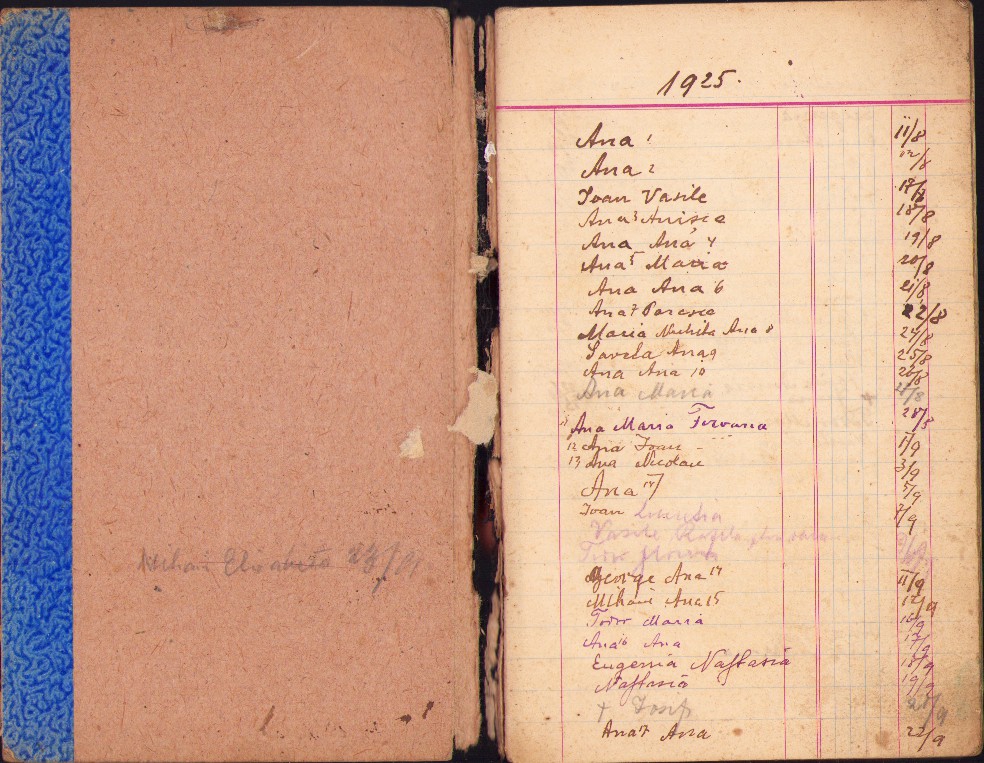 Elisabeta
1925.
Ana 1 11/8
Ana 2 12/8
Ioan Vasile 17/8
Ana 3 Anisca 18/8
Ana Ana 4 19/8
Ana 5 Maria 20/8
Ana Ana 6 21/8
Ana 7 Parasca 22/8
Maria Nichita Ana 8 24/8
Savela Ana 9 25/8
Ana Ana 10 26/8
Ana Maria
Ana Maria 28/8
12 Ana Ioan 1/9
13 Ana Nicolae 3/9
Ana 5/9
Ioan
Vasile
Todor
George Ana 14 11/9
Mihai Ana 15 12/9
Todor Maria 16/9
Ana 16 Ana 17/9
Eugenia Naftasia 18/9
Naftasia 19/9
+ Iosif
Ana 17 Ana 22/9